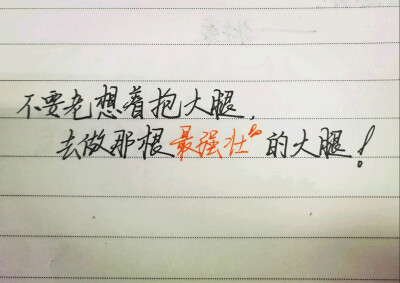 不要老想着抱大腿，
去做那根最强壮的大腿！